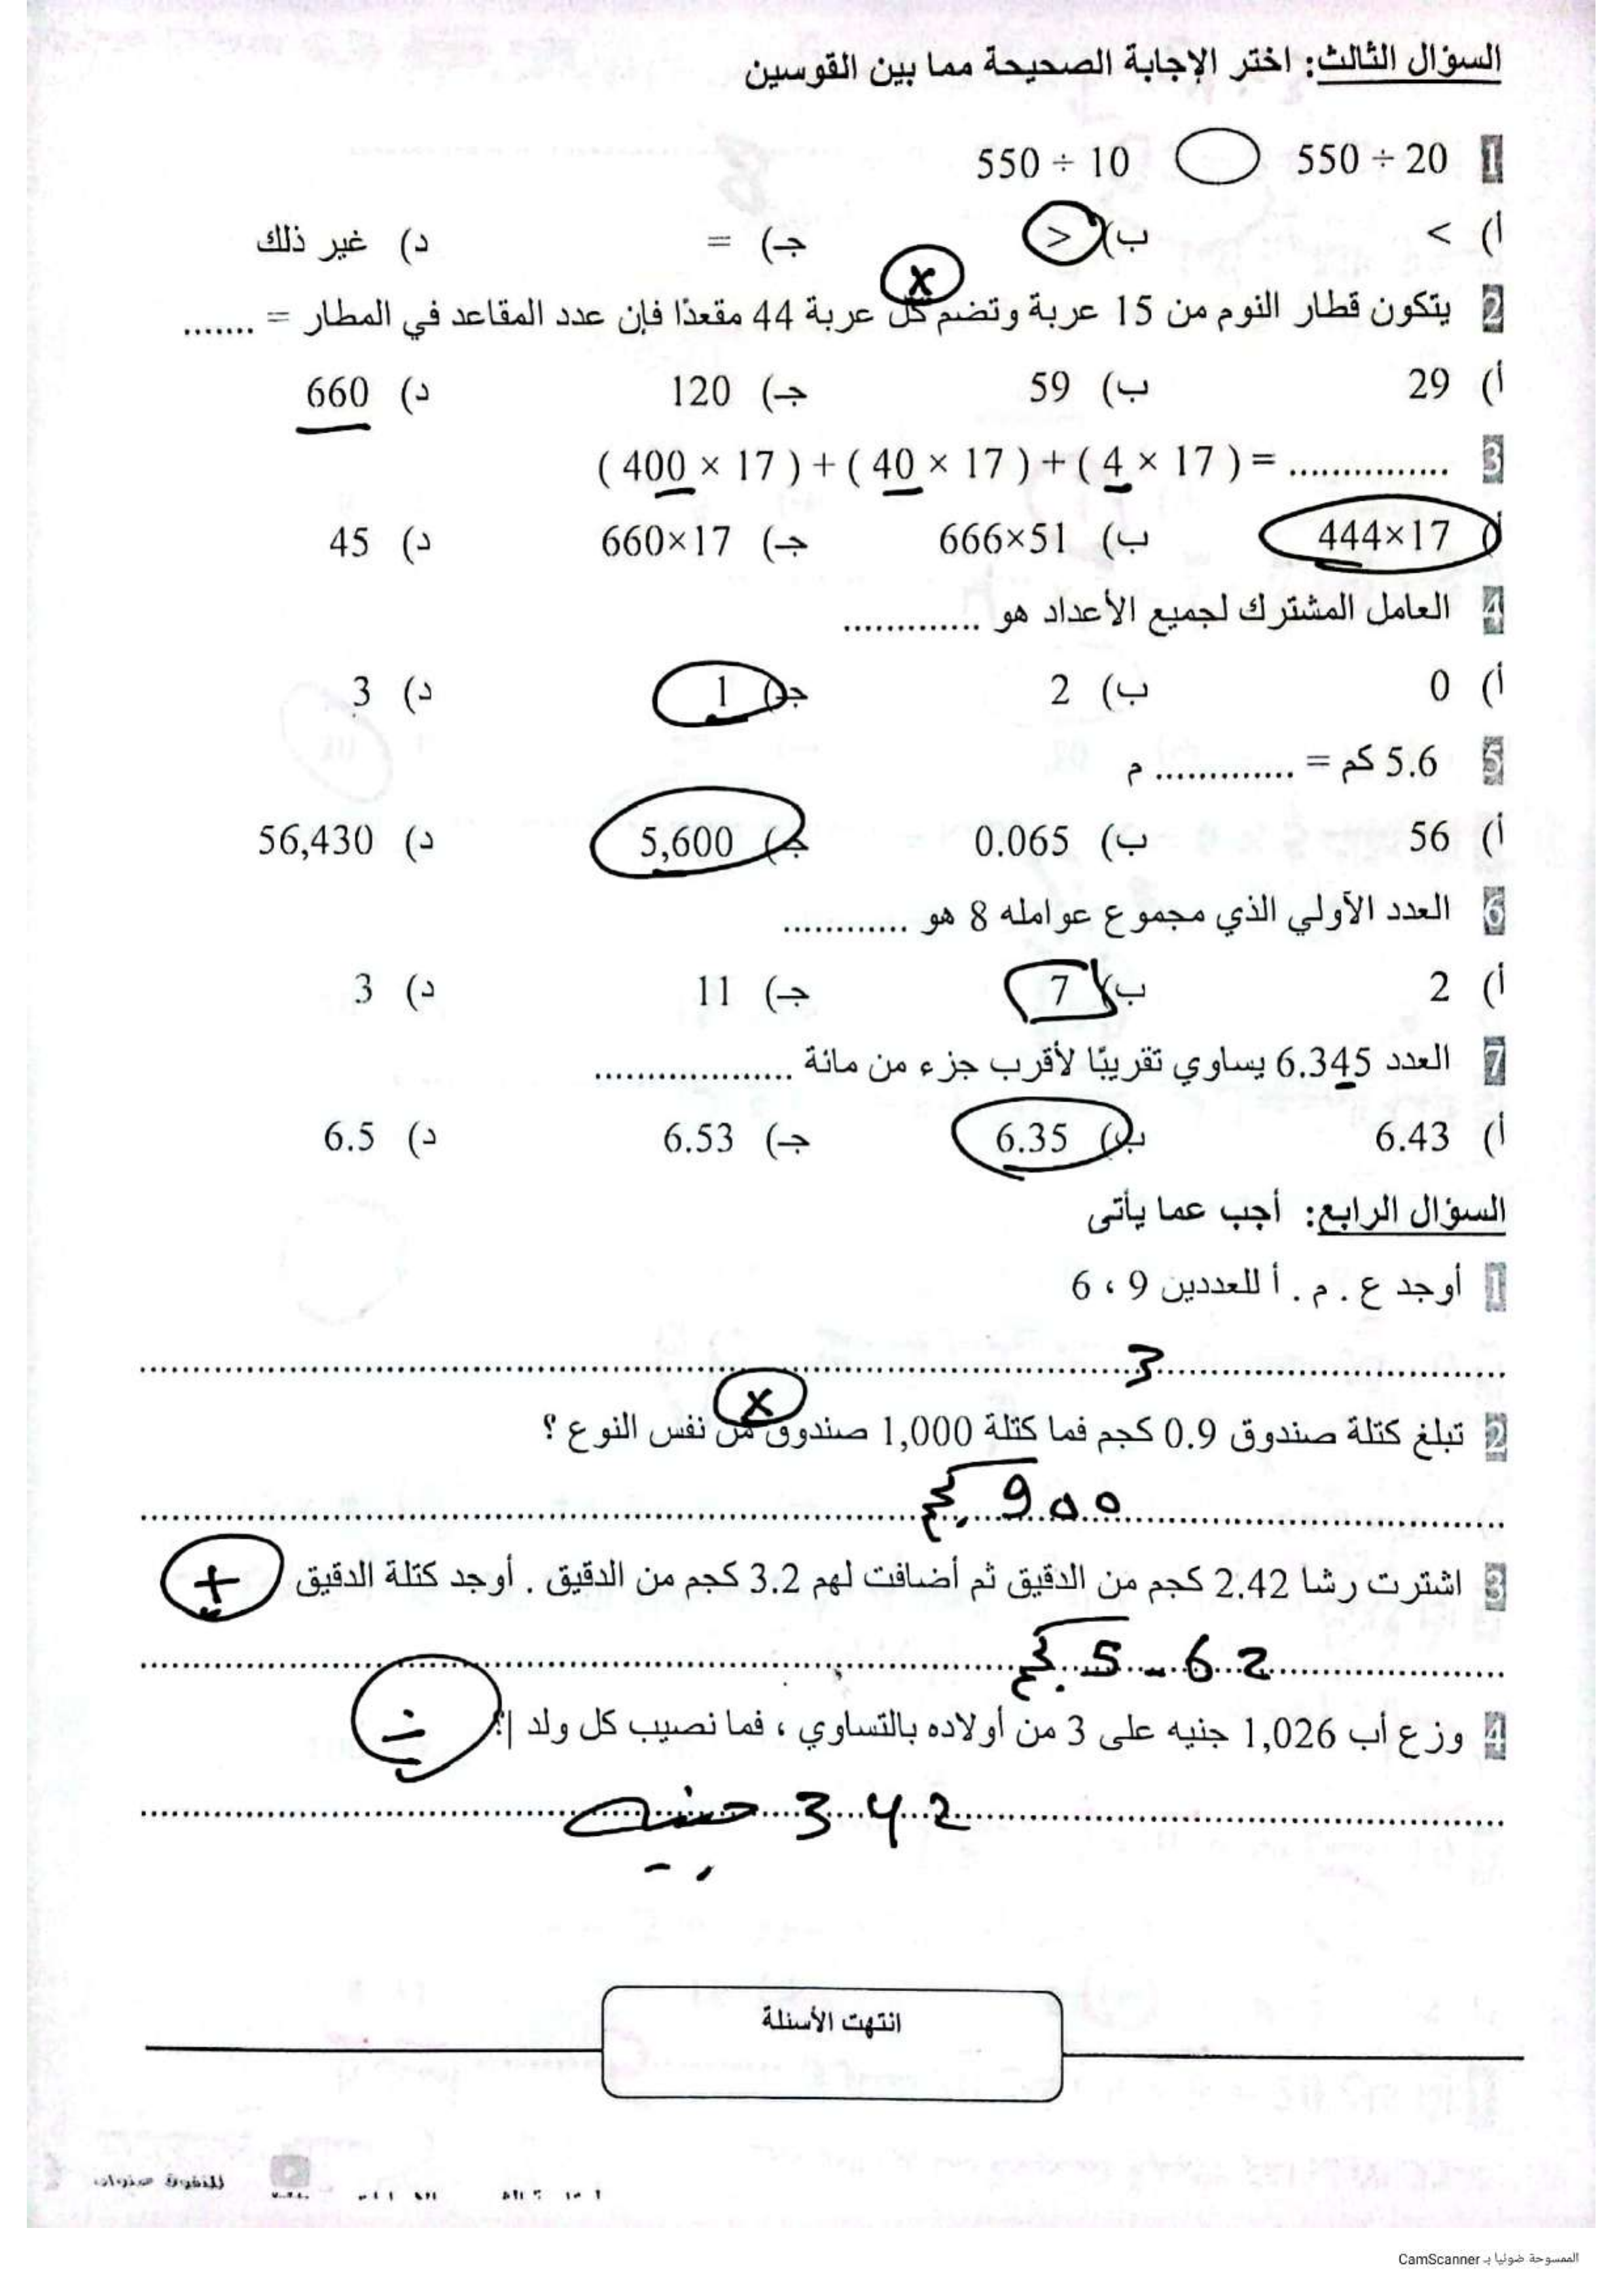 السؤال الثالث: اختر الإجابة الصحيحة مما بين القوسين
1 550 ÷ 20 550 ÷ 10
أ) < ب) > جـ) = د) غير ذلك
x
2 يتكون قطار النوم من 15 عربة وتضم كل عربة 44 مقعدًا فإن عدد المقاعد في المطار = .......
أ) 29 ب) 59 جـ) 120 د) 660
3 ( 400 × 17 ) + ( 40 × 17 ) + ( 4 × 17 ) = ...............
أ) 444×17 ب) 666×51 جـ) 660×17 د) 45
4 العامل المشترك لجميع الأعداد هو .............
أ) 0 ب) 2 جـ) 1 د) 3
5 5.6 كم = ............. م
أ) 56 ب) 0.065 جـ) 5,600 د) 56,430
6 العدد الآولي الذي مجموع عوامله 8 هو ............
أ) 2 ب) 7 جـ) 11 د) 3
7 العدد 6.345 يساوي تقريبًا لأقرب جزء من مائة ...................
أ) 6.43 ب) 6.35 جـ) 6.53 د) 6.5
السؤال الرابع: أجب عما يأتى
1 أوجد ع . م . أ للعددين 9 ، 6
3
x
2 تبلغ كتلة صندوق 0.9 كجم فما كتلة 1,000 صندوق من نفس النوع ؟
900 كجم
3 اشترت رشا 2.42 كجم من الدقيق ثم أضافت لهم 3.2 كجم من الدقيق . أوجد كتلة الدقيق +
5.62 كجم
4 وزع أب 1,026 جنيه على 3 من أولاده بالتساوي ، فما نصيب كل ولد |؟ ÷
342 جنيه
انتهت الأسئلة
الممسوحة ضوئيا بـ CamScanner